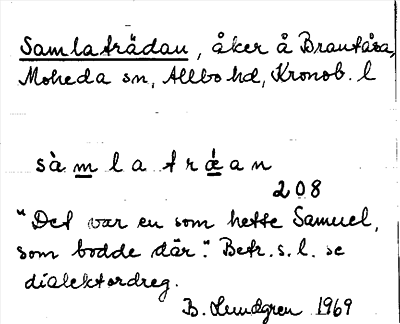 Samlaträdan, åker å Brantåsa,
Moheda sn, Allbo hd, Kronob. l
sà m l a t r ǽ a n
208
"Det var en som hette Samuel,
som bodde där". Betr. s. l. se
dialektordreg.
B. Lundgren 1969